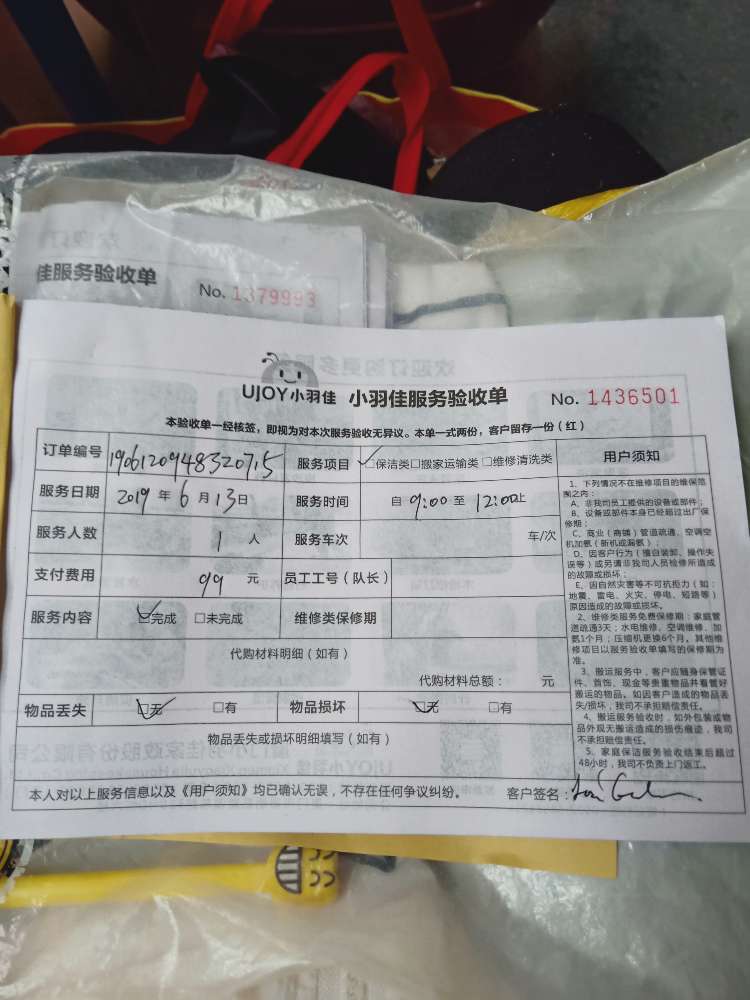 佳服务验收单
No. 1379993
UJOY小羽佳 小羽佳服务验收单 No. 1436501
本验收单一经核签，即视为对本次服务验收无异议。本单一式两份，客户留存一份（红）
订单编号 1906120948320715 服务项目 □保洁类□搬家运输类□维修清洗类
服务日期 2019年6月13日 服务时间 自9:00至12:00止
服务人数 1人 服务车次 车/次
支付费用 99元 员工工号（队长）
服务内容 □完成 □未完成 维修类保修期
代购材料明细（如有）
代购材料总额： 元
物品丢失 □无 □有 物品损坏 □无 □有
物品丢失或损坏明细填写（如有）
本人对以上服务信息以及《用户须知》均已确认无误，不存在任何争议纠纷。 客户签名：
用户须知
1、下列情况不在维修项目的维保范
围之内：
A、非我司员工提供的设备或部件；
B、设备或部件本身已经超过出厂保
修期；
C、商业（商铺）管道疏通、空调空
机加氨（新机或漏氨）；
D、因客户行为（擅自装卸、操作失
误等）或另请非我司人员检修所造成
的故障或损坏；
E、因自然灾害等不可抗力（如：
地震、雷电、火灾、停电、短路等）
原因造成的故障或损坏。
2、维修类服务免费保修期：家庭管
道疏通3天；水电维修、空调维修、加
氨1个月；压缩机更换6个月。其他维
修项目以服务验收单填写的保修期为
准。
3、搬运服务中，客户应随身保管证
件、首饰、现金等贵重物品并看管好
搬运的物品。如因客户造成的物品丢
失/损坏，我司不承担赔偿责任。
4、搬运服务验收时，如外包装或物
品外观无搬运造成的损伤痕迹，我司
不承担赔偿责任。
5、家庭保洁服务验收结束后超过
48小时，我司不负责上门返工。